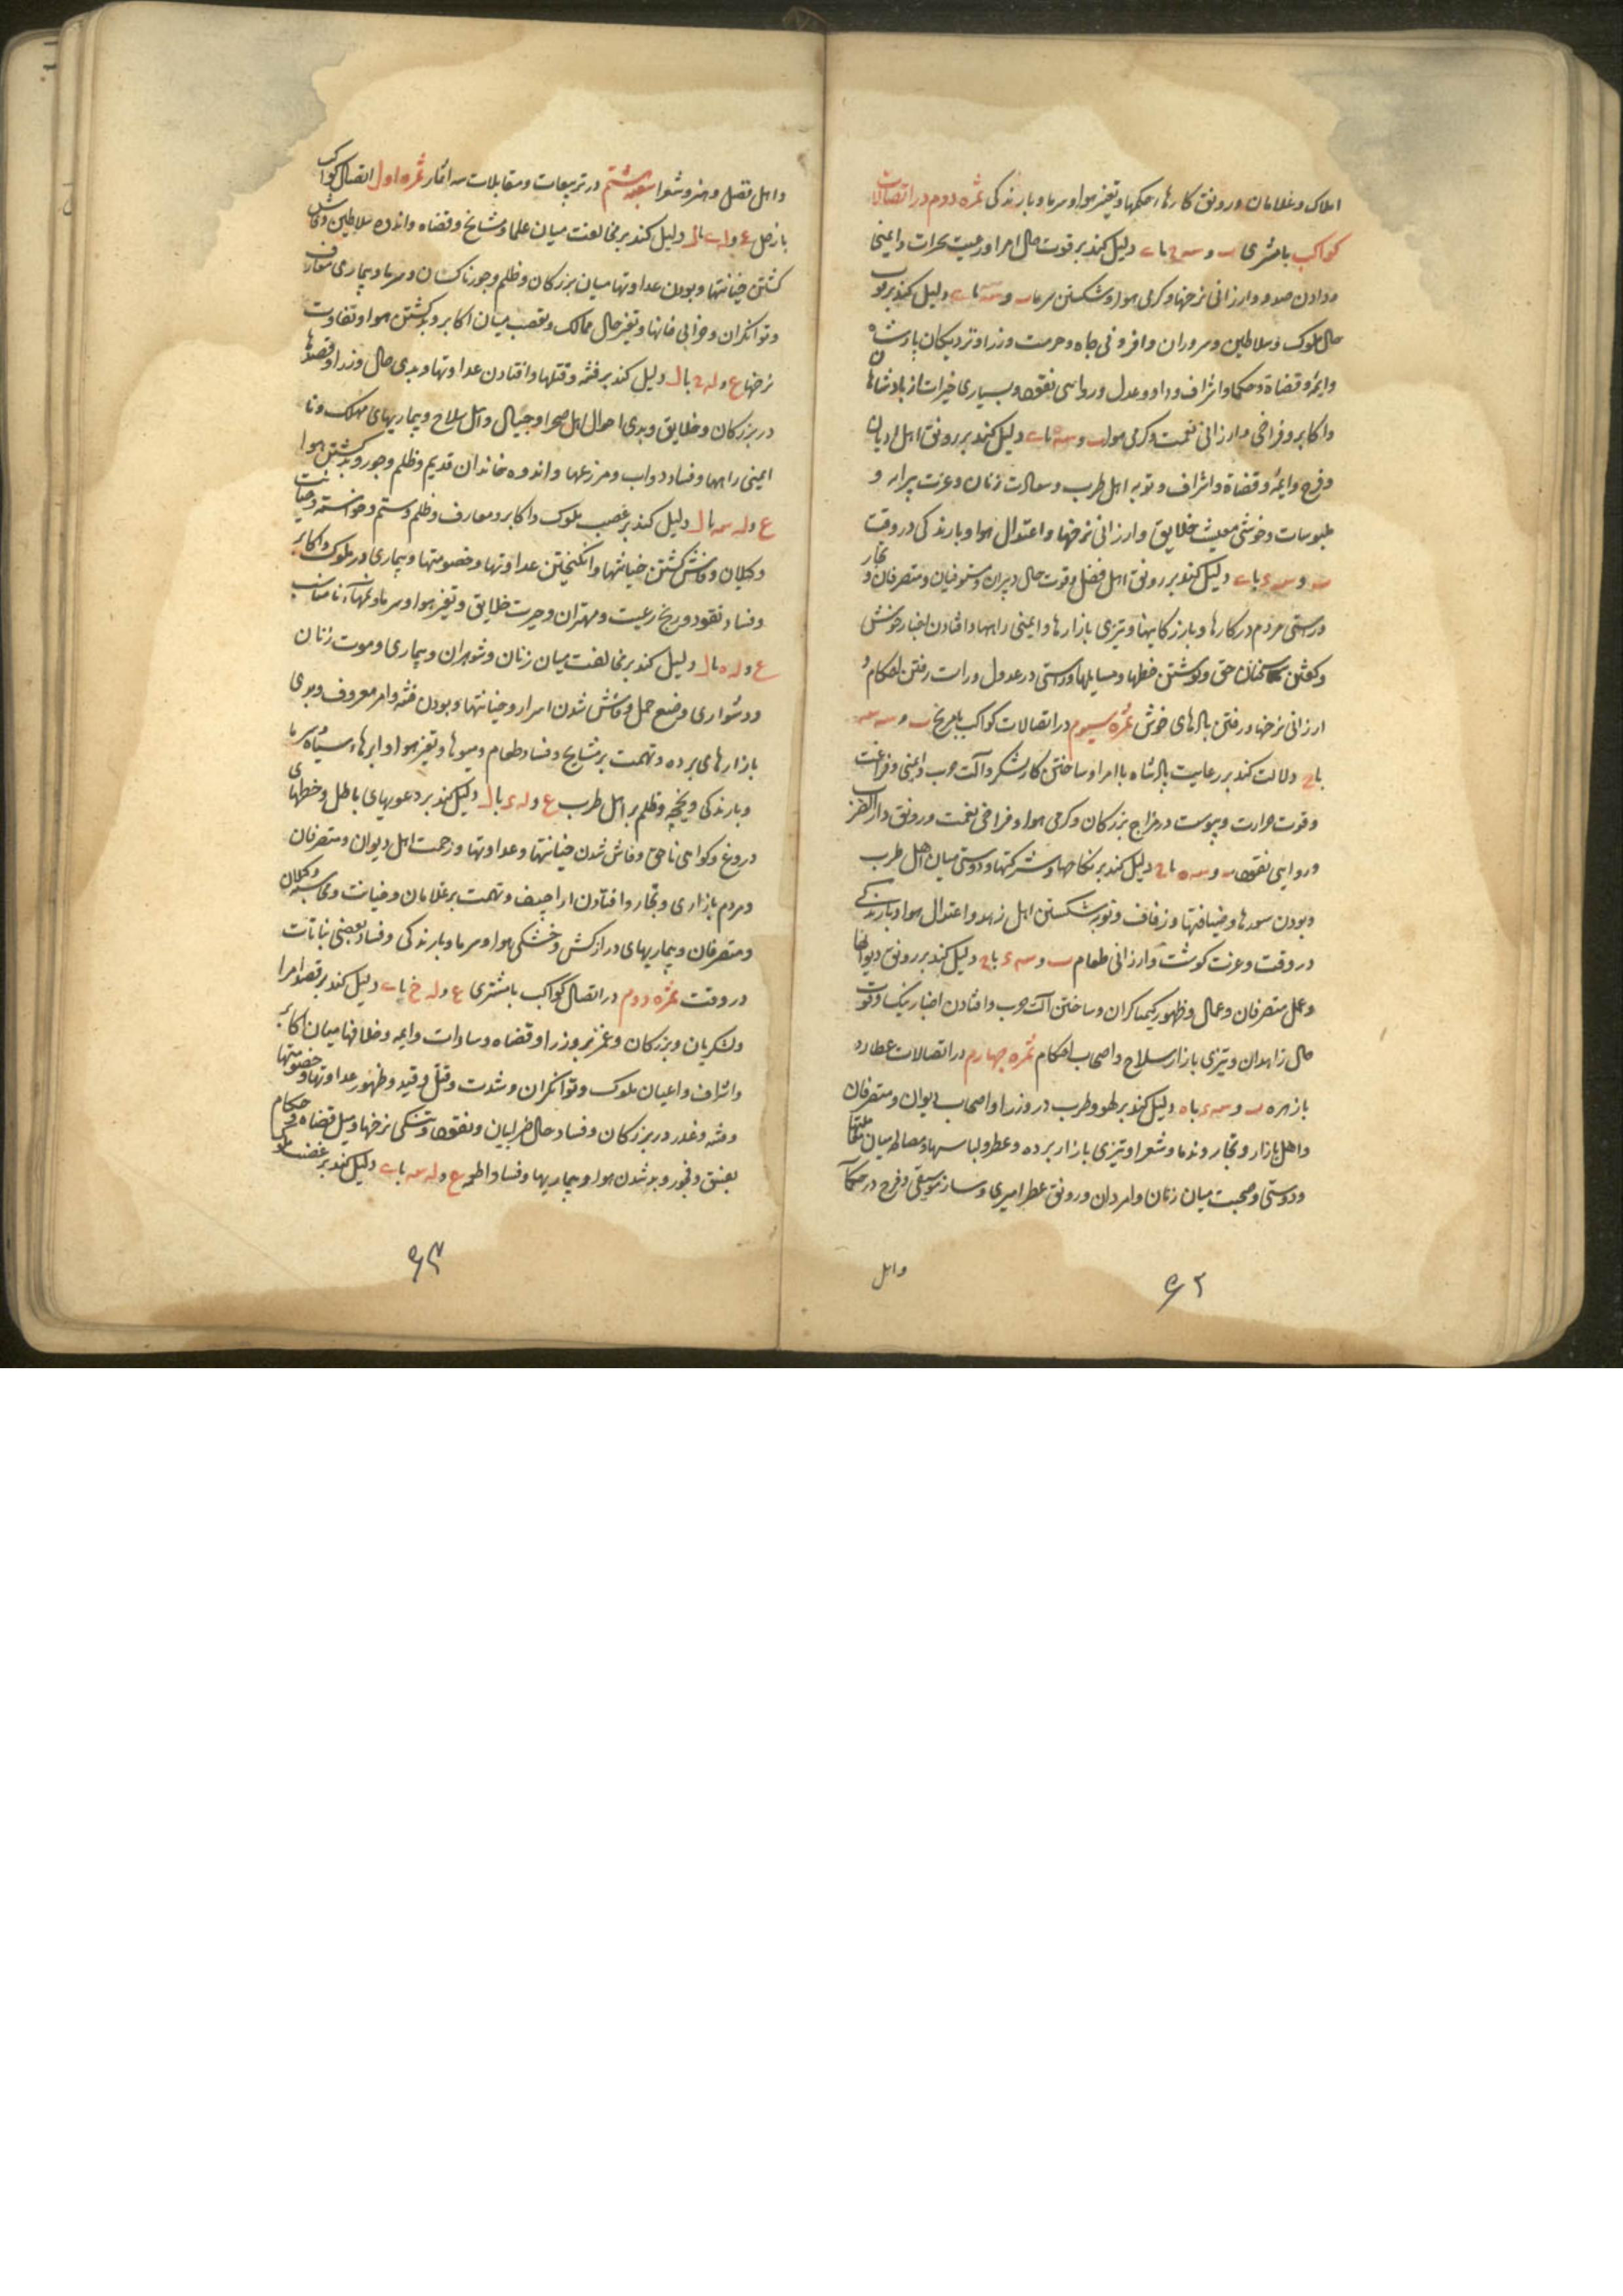 املاک و غلامان و رونق کارها، حکمها و تغیر هوا و سرما و بارندکی ثمره دوم در اتصالات
کواکب با مشتری دلیل کند بر قوت حال امرا و رعیت و ایمنی
و دادن صدور و ارزانی نرخها و کرمی هوا و شکستن سرما دلیل کند بر
حال ملوک و سلاطین و سروران و افزونی جاه و حرمت وزرا و نزدیکان پادشاه
و ایمه و قضاة و حکما و اشراف و داد و عدل و روایی نقود و بسیاری خیرات از پادشاهان
و اکابر و فراخی و ارزانی نعمت و کرمی هوا دلیل کند بر رونق اهل ادیان
و فرح و ایمه و قضاة و اشراف و توبه اهل طرب و سعادت زنان و عزت پیرایه و
ملبوسات و خوشی معیشت خلایق و ارزانی نرخها و اعتدال هوا و بارندکی در وقت
دلیل کند بر رونق اهل فضل و قوت حال دبیران و مستوفیان و متصرفان و تجار
و درستی مردم در کارها و بازرکانیها و تیزی بازارها و ایمنی راهها و افتادن اخبار خوش
و کفتن سخنان حق و نوشتن خطها و راستی در عدول و راست رفتن احکام و
ارزانی نرخها و رفتن بادهای خوش ثمره سیوم در اتصالات کواکب با مریخ
دلالت کند بر رعایت پادشاه با امرا و ساختن کار لشکر و آلت حرب و ایمنی و فراغت
و قوت حرارت و یبوست در مزاج بزرکان و کرمی هوا و فراخی نعمت و رونق دار الضرب
و روایی نقود دلیل کند بر نکاحها و شرکتها و دوستی میان اهل طرب
و بودن سورها و ضیافتها و زفاف و توبه شکستن اهل زهد و اعتدال هوا و بارندکی
در وقت و عزت کوشت و ارزانی طعام دلیل کند بر رونق دیوانها
و عمل متصرفان و عمال و ظهور کیمیاکران و ساختن آلت حرب و افتادن اخبار نیک و قوت
حال زاهدان و تیزی بازار سلاح و اصحاب احکام ثمره چهارم در اتصالات عطارد
با زهره دلیل کند بر لهو و طرب در وزرا و اصحاب دیوان و متصرفان
و اهل بازار و تجار و ندما و شعرا و تیزی بازار برده و عطر و لباسها و مصالحه میان
و دوستی و محبت میان زنان و امردان و رونق عطر و ساز موسیقی و فرح در
و اهل
۶۲
و اهل فضل و هنر و شعرا شعبه هشتم در تربیعات و مقابلات ثمره اول اتصال کواکب
با زحل دلیل کند بر مخالفت میان علما و مشایخ و قضاه و اندوه سلاطین و فاش
کشتن خیانتها و بودن عداوتها میان بزرکان و ظلم و جور ناکسان و سرما و بیماری معارف
و توانکران و خرابی خانها و تغیر حال ممالک و تعصب میان اکابر و بد کشتن هوا و تفاوت
نرخها دلیل کند بر فتنه و قتلها و افتادن عداوتها و بدی حال وزرا و قصدها
در بزرکان و خلایق و بدی احوال اهل صحرا و جبال و اهل سلاح و بیماریهای مهلک و نا
ایمنی راهها و فساد دواب و مزرعها و اندوه خاندان قدیم و ظلم و جور و بد کشتن هوا
دلیل کند بر غضب ملوک و اکابر و معارف و ظلم و ستم
و کیلان و فاش کشتن خیانتها و انکیختن عداوتها و خصومتها و بیماری در ملوک و اکابر
و فساد نقود و رنج رعیت و مهتران و حیرت خلایق و تغیر هوا و سرما
دلیل کند بر مخالفت میان زنان و شوهران و بیماری و موت زنان
و دشواری وضع حمل و فاش شدن اسرار و خیانتها و بودن فتنه و امر معروف و بدی
بازارهای برده و تهمت بر مشایخ و فساد طعام و میوها و تغیر هوا و ابرهاء سیاه سرما
و بارندکی و یخچه و ظلم بر اهل طرب دلیل کند بر دعویهای باطل و خطهای
دروغ و کواهی ناحق و فاش شدن خیانتها و عداوتها و زحمت اهل دیوان و متصرفان
و مردم بازاری و تجار و افتادن اراجیف و تهمت بر غلامان و خیانت و محاسبه و کیلان
و متصرفان و بیماریهای دراز کش و خشکی هوا و سرما و بارندکی و فساد بعضی نباتات
در وقت ثمره دوم در اتصال کواکب با مشتری دلیل کند بر قصد امرا
و لشکریان و بزرکان و وزرا و قضاه و سادات و ایمه و خلافها میان اکابر
و اشراف و اعیان ملوک و توانکران و شدت و قتل و قید و ظهور عداوتها و خصومتها
و فتنه و غدر در بزرکان و فساد حال ضرابیان و نقود و تنکی نرخها و میل قضاه و حکام
بفسق و فجور و بد شدن هوا و بیماریها و فساد اطعمه دلیل کند بر غضب ملوک
۶۳